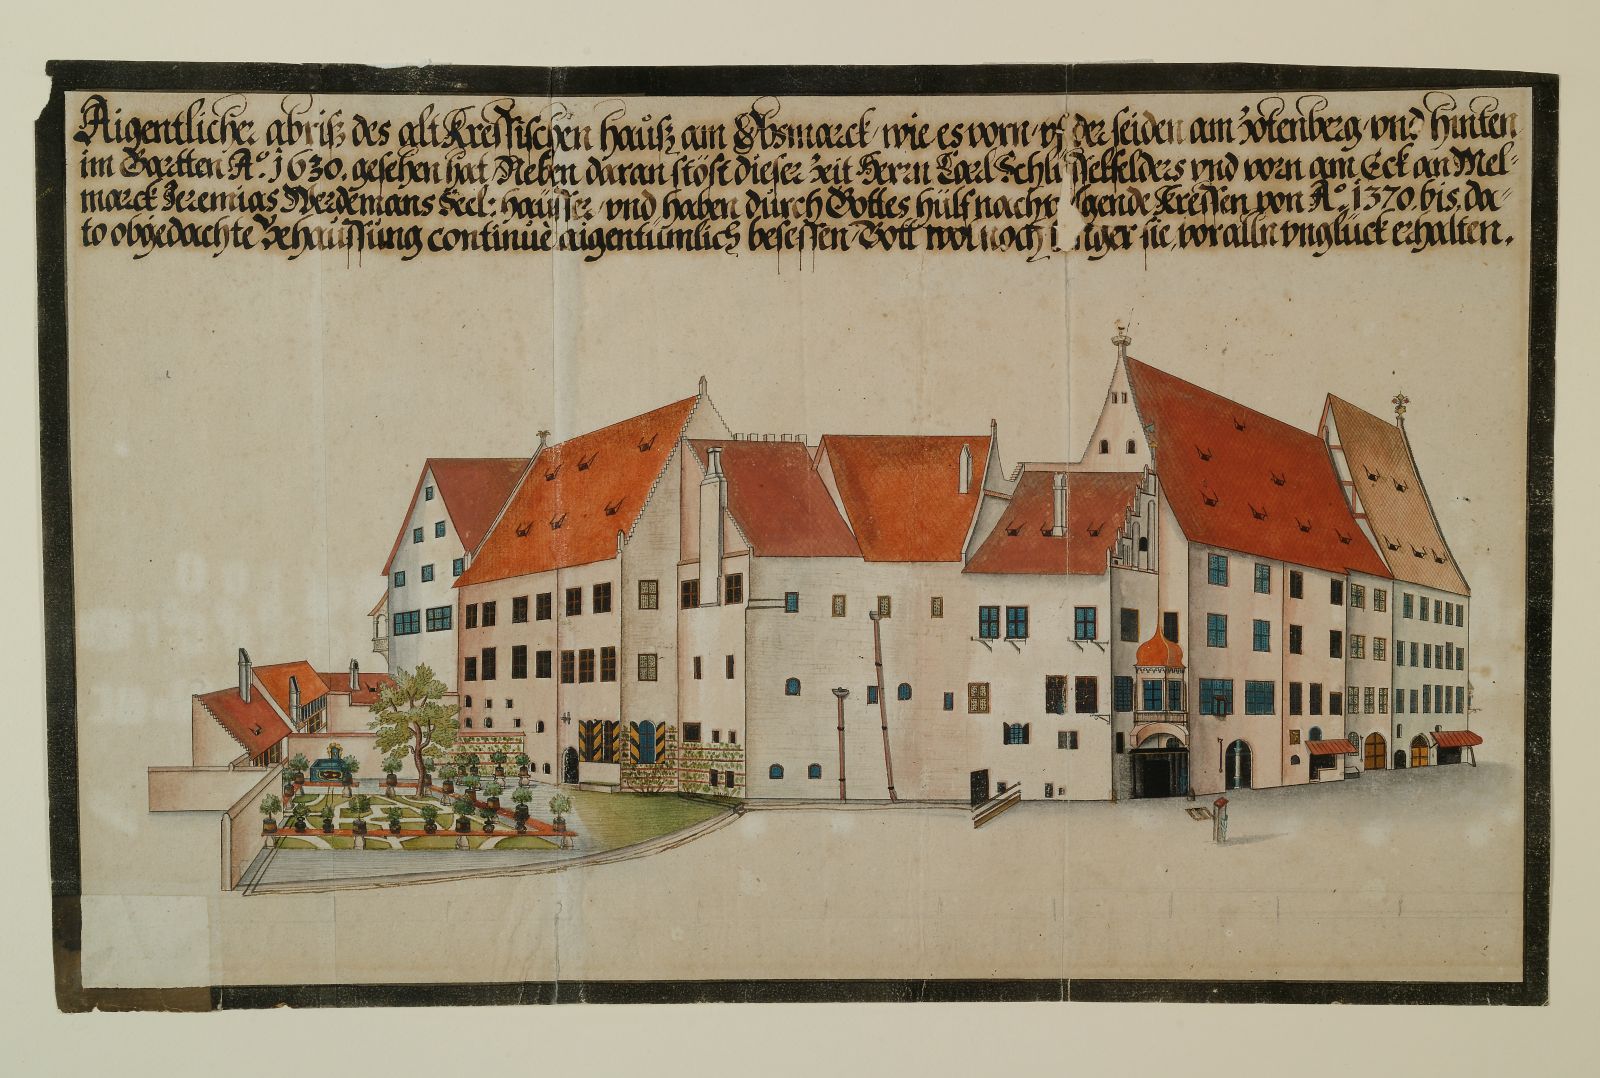 Aigentlicher abriß des alt Kressischen hauß am Obsmarck, wie es vorn, vf der seiden am Zotenberg, vnd hinten
im Gartten Aº. 1630. gesehen hat Neben daran stöst dieser zeit Herrn Carl Schlüsselfelders vnd vorn am Eck am Mel-
marck Jeremias Werdemans Seel: haüsser, vnd haben durch Gottes hülf nachfolgende Kressen von Aº. 1370. bis. da-
to obgedachte Behaüssung continuè aigentümlich besessen Gott wol noch lenger sie, vor alln vnglück erhalten.